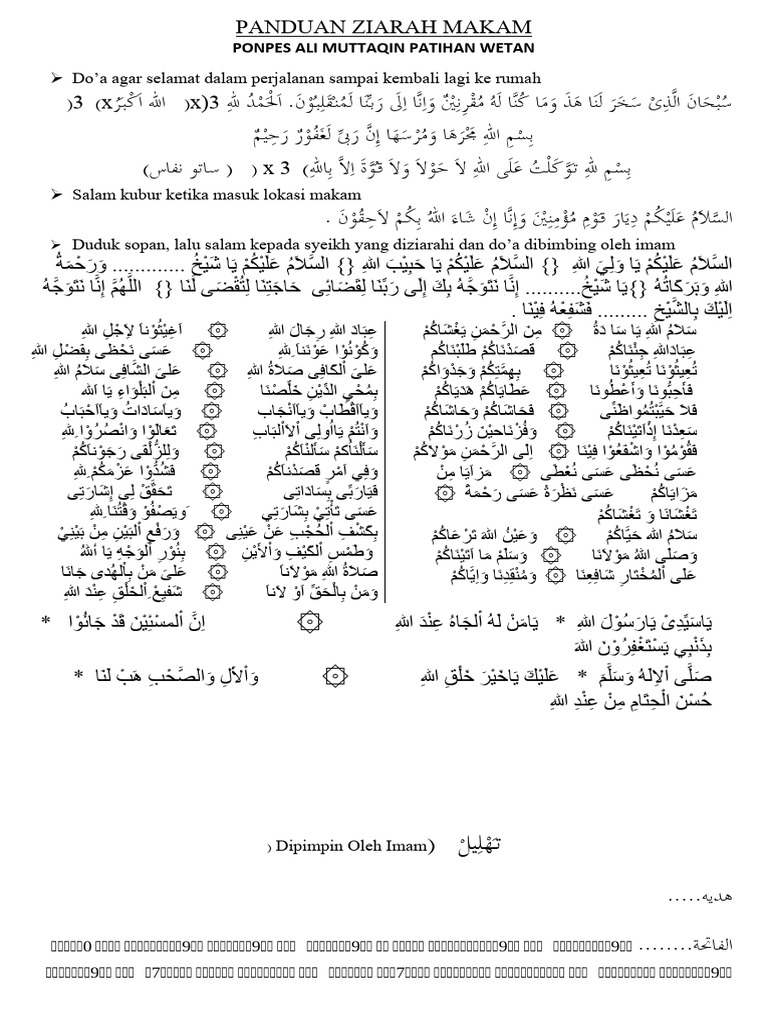 PANDUAN ZIARAH MAKAM
PONPES ALI MUTTAQIN PATIHAN WETAN
➢ Do’a agar selamat dalam perjalanan sampai kembali lagi ke rumah
سُبْحَانَ الَّذِىْ سَخَرَ لَنَا هَذَ وَمَا كُنَّا لَهُ مُقْرِنِيْنٌ وَاِنَّا اِلَى رَبِّنَا لَمُنْقَلِبُوْنَ. اَلْحَمْدُ للهِ 3(x( الله اَكْبَرُx) 3(
بِسْمِ اللهِ مَجْرَهَا وَمُرْسَهَا إِنَّ رَبِىِّ لَغَفُوْرٌ رَحِيْمٌ
بِسْمِ للهِ تَوَّكَلْتُ عَلَى اللهِ لاَ حَوْلاَ وَلاَ قُوَّةَ اِلاَّ بِاللهِ) x 3 ( ( ساتو نفاس)
➢ Salam kubur ketika masuk lokasi makam
السَّلاَمُ عَلَيْكُمْ دِيَارَ قَوْمِ مُؤْمِنِيْنَ وَإِنَّا إِنْ شَاءَ اللهُ بِكُمْ لاَحِقُوْنَ .
➢ Duduk sopan, lalu salam kepada syeikh yang diziarahi dan do’a dibimbing oleh imam
السَّلاَمُ عَلَيْكُمْ يَا وَلِيَ اللهِ {} السَّلاَمُ عَلَيْكُمْ يَا حَبِيْبَ اللهِ {} السَّلاَمُ عَلَيْكُمْ يَا شَيْخُ ............. وَرَحْمَةُ
اللهِ وَبَرَكَاتُهُ {}يَا شَيْخُ.......... إِنَّا نَتَوَجَّهُ بِكَ إِلَى رَبِّنَا لِقَضَائِى حَاجَتِنَا لِتُقْضَى لَنَا {} اللَّهُمَّ إِنَّا نَتَوَجَّهُ
إِلَيْكَ بِالشَّيْخِ ......... فَشَفِعْهُ فِيْنَا .
سَلاَمُ اللهِ يَا سَا دَةُ ۞ مِنَ الرَّحْمَنِ يَغْشَاكُمْ
عِبَادَاللهِ جِئْنَاكُمْ ۞ قَصَدْنَاكُمْ طَلَبْنَاكُمْ
تُعِيْنُوْنَا تُغِيْثُوْنَا ۞ بِهِمَّتِكُمْ وَجَدْوَاكُمْ
فَاَحِبُّوْنَا وَاَعْطُونَا ۞ عَطَايَاكُمْ هَدَيَاكُمْ
فَلا خَيَّبْتُمُواظَنِّى ۞ فَحَاشَاكُمْ وَحَاشَاكُمْ
سَعِدْنَا إِذْاَتَيْنَاكُمْ ۞ وَفُزْنَاحِيْنَ زُرْنَاكُمْ
فَقُوْمُوْا وَاشْفَعُوْا فِيْنَا ۞ اِلَى الرَّحْمَنِ مَوْلاَكُمْ
عَسَى نُحْظَى عَسَى نُعْطَى ۞ مَزَاَيَا مِنْ
مَزَايَاكُمْ عَسَى نَظْرَةْ عَسَى رَحْمَةْ ۞
تَغْشَانَا وَ تَغْشَاكُمْ
سَلاَمُ اللهُ حَيَّاكُمْ ۞ وَعَيْنُ اللهَ تَرْعَاكُمْ
وَصَلَّى اللهُ مَوْلاَنَا ۞ وَسَلَّمْ مَا اَتَيْنَاكُمْ
عَلَى اْلمُخْتَارِ شَافِعِنَا ۞ وَمُنْقِدِنَا وَاِيَّاكُمْ
عِبَادَ اللهِ رِجَالَ اللهِ ۞ اَغِيْثُوْنَا لِاَجْلِ اللهِ
وَكُوْنُوْا عَوْنَنَا ِللهِ ۞ عَسَى نَحْظَى بِفَضْلِ اللهِ
عَلَىَ اْلكَافِى صَلاَةُ اللهِ ۞ عَلَىَ الشَّافِى سَلاَمُ اللهِ
بِمُحْيِ الدِّيْنِ خَلَّصْنَا ۞ مِنَ اْلبَلْوَاءِ يَا اَللهُ
وَيااَقْطَابْ وَيااَنْجَاب ۞ وَياَسَادَاتُ وَيااَحْبَابُ
وَاَنْتُمْ يَااُولِى اْلاَلْبَابِ ۞ تَعَالَوْا وَانْصُرُوْا ِللهِ
سَاَلْنَاكُمْ سَاَلْنَاكُمْ ۞ وَلِلزُّلْفَى رَجَوْناَكُمْ
وَفِي اَمْرٍ قَصَدْناَكُمْ ۞ فَشُدُّوْا عَزْمَكُمْ ِللهِ
فَيَارَبِّى بِسَادَاتِى ۞ تَحَقَّقْ لِى إِشَارَتِى
عَسَى تَأْتِيْ بِشَارَتِي ۞ وَيَصْفُوْ وَقْتُنَا ِللهِ
بِكَشْفِ اْلحُجْبِ عَنْ عَيْنِى ۞ وَرَفْعِ اْلبَيْنِ مِنْ بَيْنِيْ
وَطَمْسِ اْلكَيْفِ وَاْلاَيْنِ ۞ بِنُوْرِ اْلوَجْهِ يَا اَللهُ
صَلاَةُ اللهِ مَوْلاَناَ ۞ عَلَىَ مَنْ بِاْلهُدى جَانَا
وَمَنْ بِالْحَقِّ اَوْ لاَناَ ۞ شَفِيعْ ِاْلخَلْقِ عِنْدَ اللهِ
يَاسَيِّدِىْ يَارَسُوْلَ اللهِ * يَامَنْ لَهُ اْلجَاهُ عِنْدَ اللهِ ۞ اِنَّ اْلمسْيِيْنَ قَدْ جَائُوْا *
بِذَنْبِي يَسْتَغْفِرُوْنَ اللهَ
صَلَّى اْلاِلَهُ وَسَلَّمَ * عَلَيْكَ يَاخَيْرَ خَلْقِ اللهِ ۞ وَاْلاَلِ وَالصَّحْبِ هَبْ لَنَا *
حُسْنَ الْخِتَامِ مِنْ عِنْدِ اللهِ
تَهْلِيلْ (Dipimpin Oleh Imam )
هديه.....
الفاتحة........